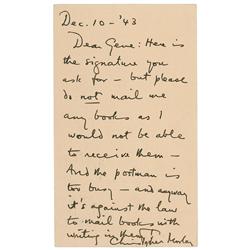 Dec. 10 - '43
Dear Gene: Here is
the signature you
ask for - but please
do not mail me
any books as I
would not be able
to receive them -
And the postman is
too busy - and anyway
it's against the law
to mail books with
writing in them!
Christopher Morley